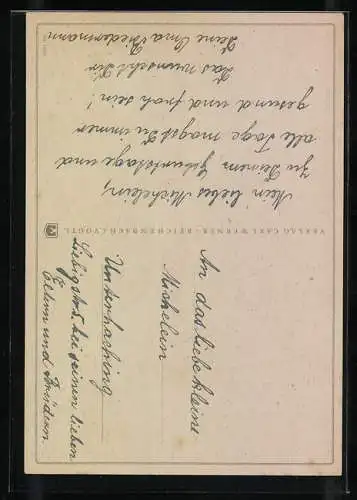 Mein liebes Michelein,
zu Deinem Geburtstage und
alle Tage magst Du immer
gesund und froh sein!
Das wünscht Dir
Deine Oma Biedermann
VERLAG CARL WERNER · REICHENBACH I. VOGTL.
An das liebe kleine
Michelein
Unterhaching
Liebigstr. 5 bei seinen lieben
Eltern und Brüdern